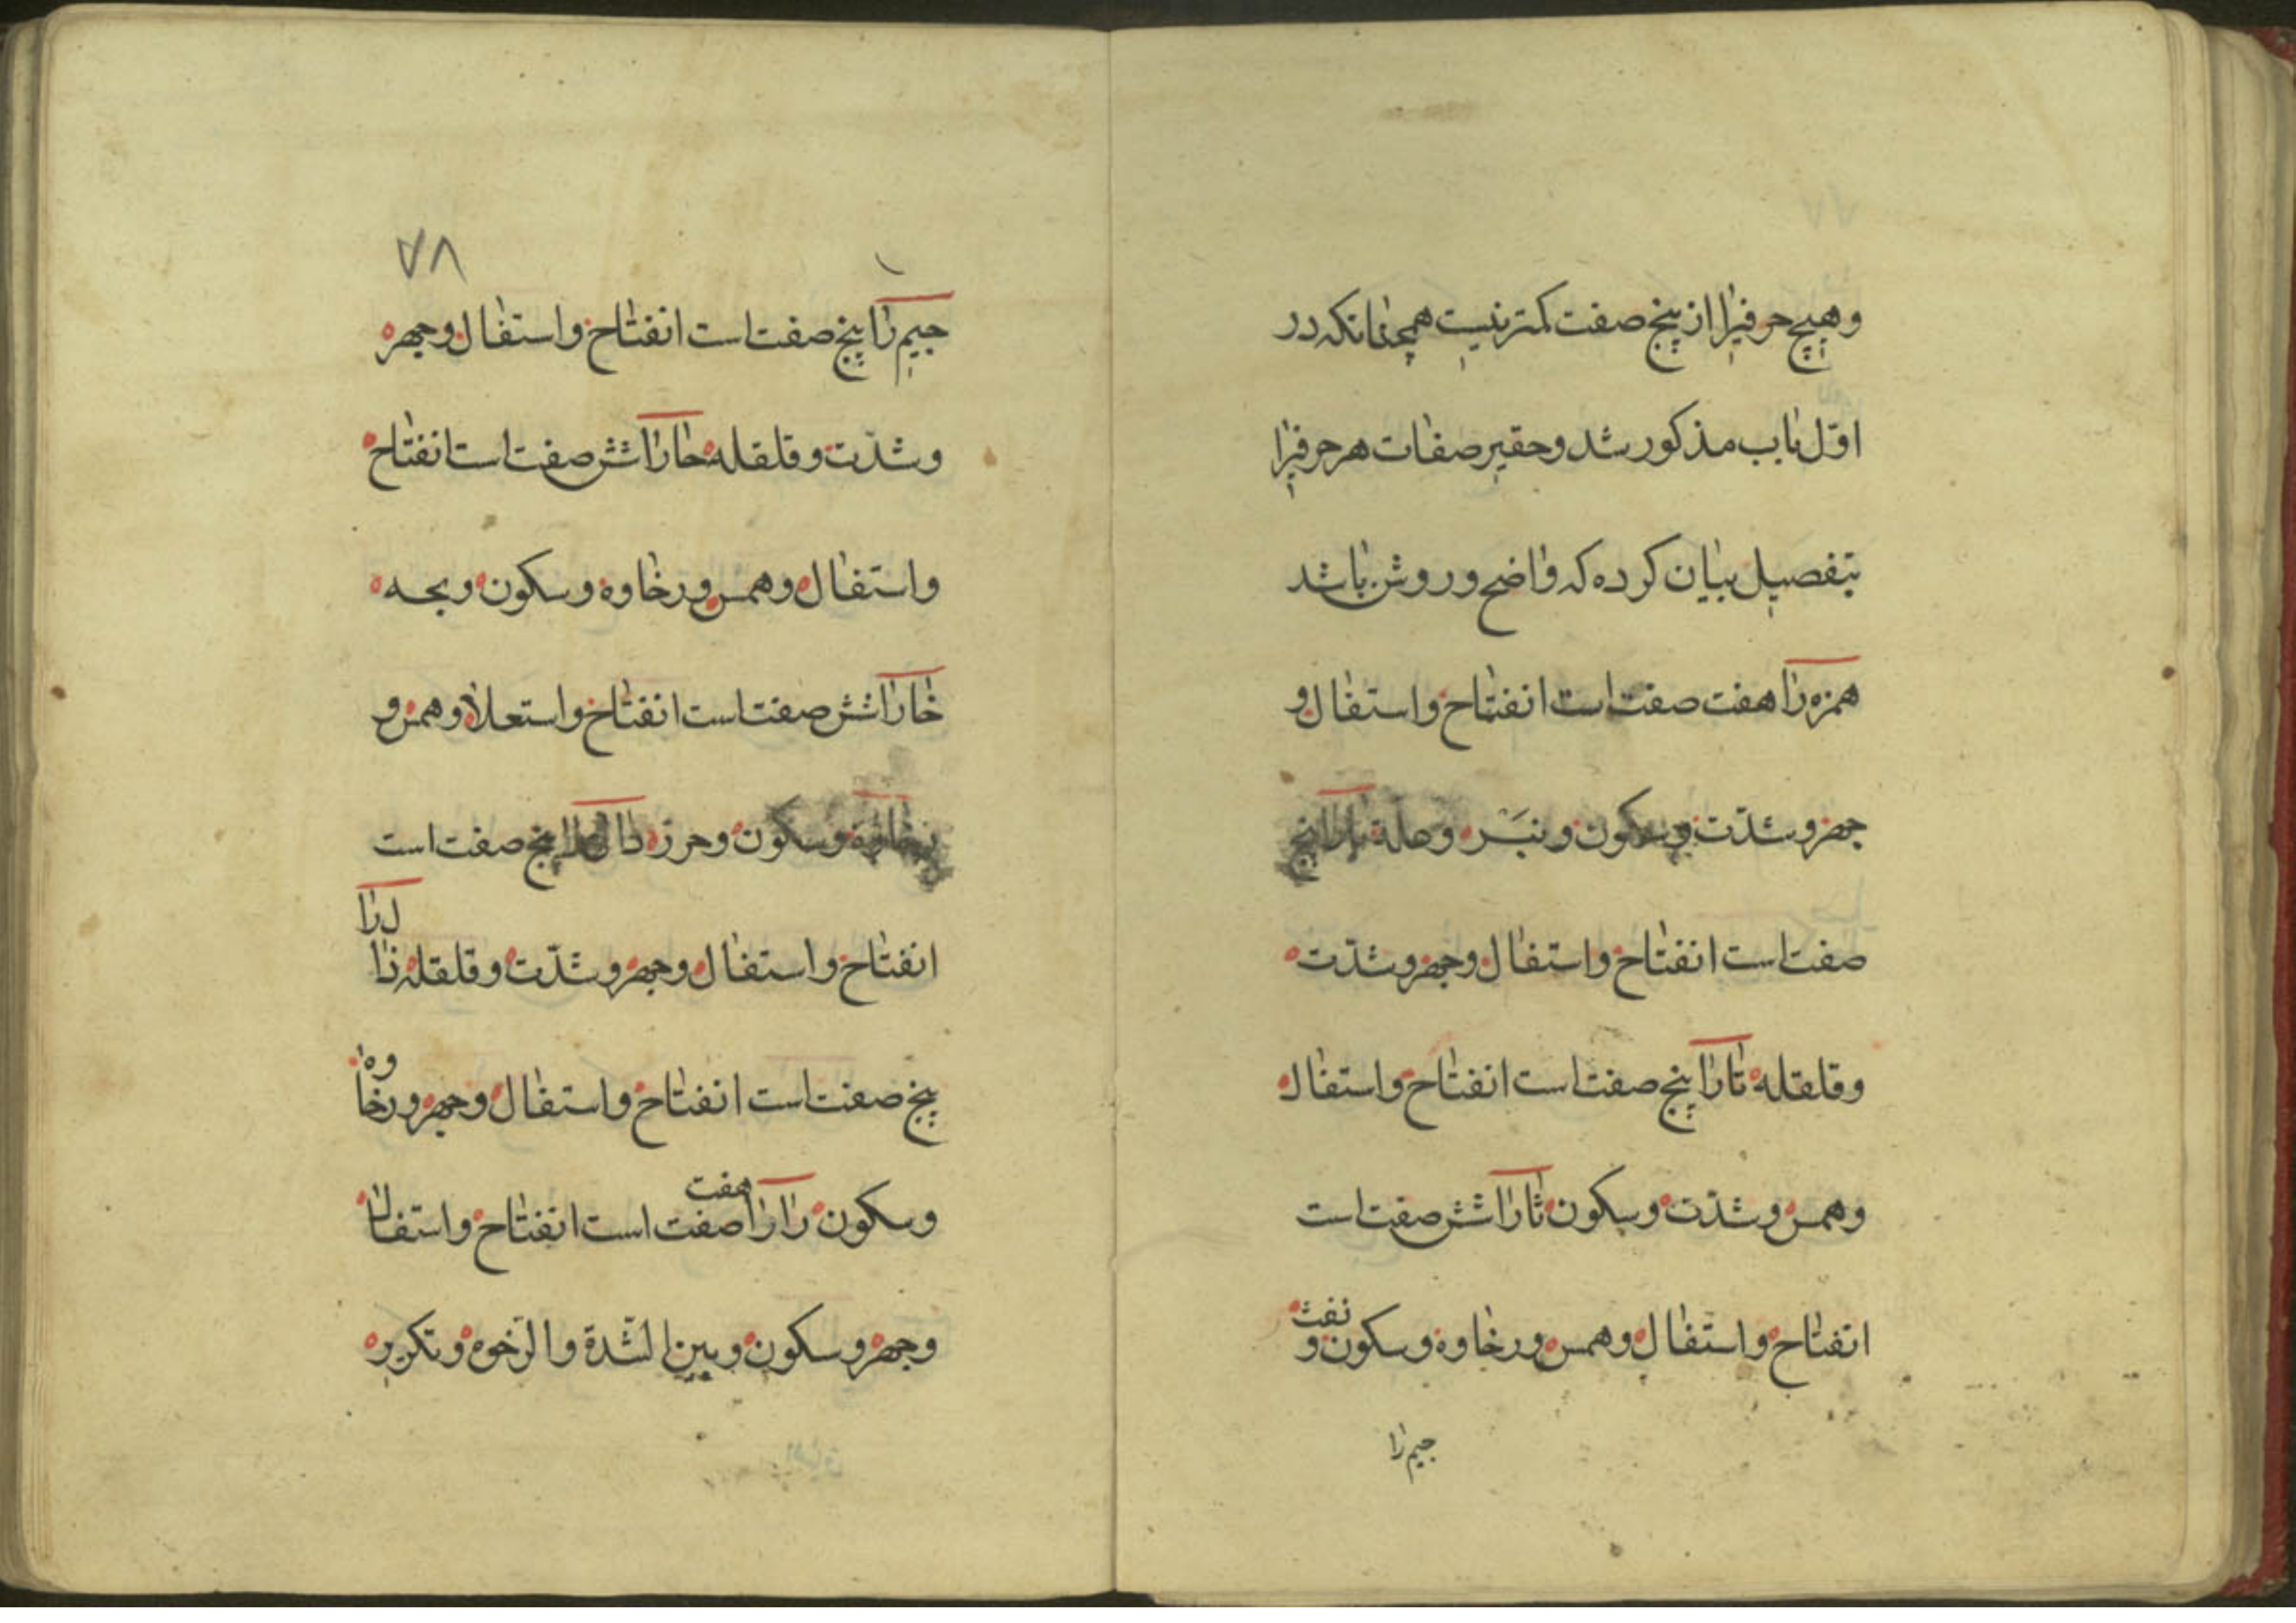 و هیچ حرفیرا از پنج صفت کمتر نیست همچنانکه در
اوّل باب مذکور شد و حقیر صفات هر حرفیرا
بتفصیل بیان کرده که واضح و روشن باشد
همزه را هفت صفت است انفتاح و استفال و
جهر و شدّت و سکون و نبر و حلة با را پنج
صفت است انفتاح و استفال و جهر و شدّت
و قلقله تا را پنج صفت است انفتاح و استفال
و همس و شدّت و سکون ثا را شش صفت است
انفتاح و استفال و همس و رخاوه و سکون و نفث
جیم را
۷۸
جیم را پنج صفت است انفتاح و استفال و جهر
و شدّت و قلقله حا را شش صفت است انفتاح
و استفال و همس و رخاوه و سکون و بحه
خا را شش صفت است انفتاح و استعلا و همس و
رخاوه و سکون و حرز دال را پنج صفت است
انفتاح و استفال و جهر و شدّت و قلقله ذال را
پنج صفت است انفتاح و استفال و جهر و رخاوه
و سکون را را هفت صفت است انفتاح و استفال
و جهر و سکون و بین الشّدة و الرّخوه و تکریر